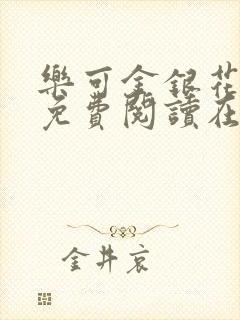 樂可金銀花
免費閱讀在
金井哀